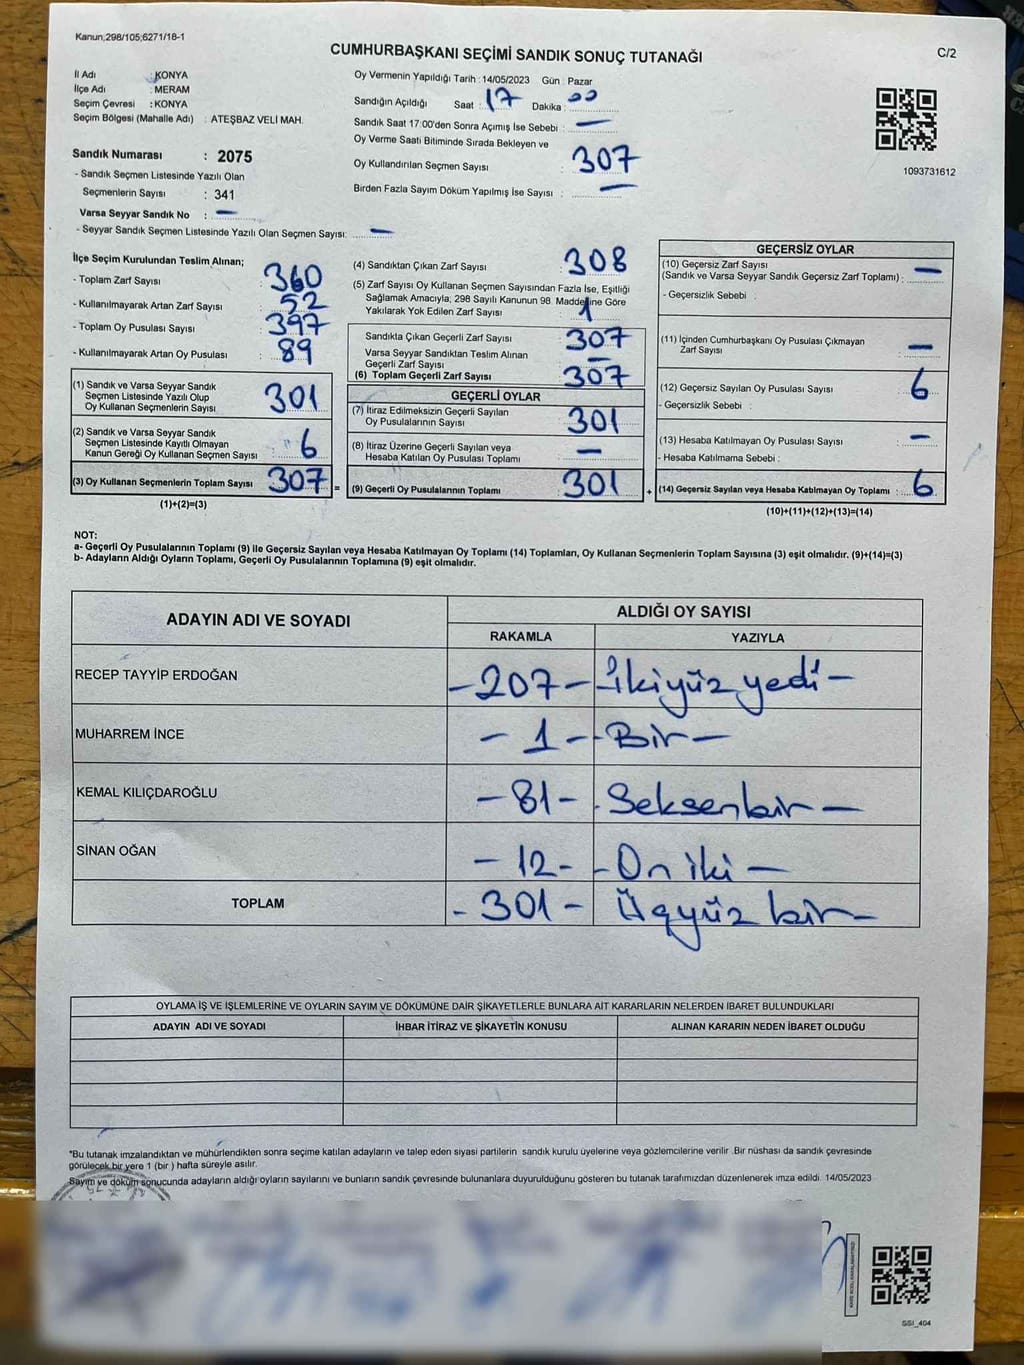 Kanun;298/105;6271/18-1
CUMHURBAŞKANI SEÇİMİ SANDIK SONUÇ TUTANAĞI
C/2
İl Adı : KONYA
İlçe Adı : MERAM
Seçim Çevresi : KONYA
Seçim Bölgesi (Mahalle Adı) : ATEŞBAZ VELİ MAH.
Sandık Numarası : 2075
- Sandık Seçmen Listesinde Yazılı Olan
Seçmenlerin Sayısı : 341
Varsa Seyyar Sandık No : —
- Seyyar Sandık Seçmen Listesinde Yazılı Olan Seçmen Sayısı: —
Oy Vermenin Yapıldığı Tarih : 14/05/2023 Gün : Pazar
Sandığın Açıldığı Saat : 17 Dakika : 00
Sandık Saat 17:00'den Sonra Açımış İse Sebebi : —
Oy Verme Saati Bitiminde Sırada Bekleyen ve
Oy Kullandırılan Seçmen Sayısı : 307
Birden Fazla Sayım Döküm Yapılmış İse Sayısı : —
1093731612
İlçe Seçim Kurulundan Teslim Alınan;
- Toplam Zarf Sayısı : 360
- Kullanılmayarak Artan Zarf Sayısı : 52
- Toplam Oy Pusulası Sayısı : 397
- Kullanılmayarak Artan Oy Pusulası : 89
(1) Sandık ve Varsa Seyyar Sandık
Seçmen Listesinde Yazılı Olup
Oy Kullanan Seçmenlerin Sayısı : 301
(2) Sandık ve Varsa Seyyar Sandık
Seçmen Listesinde Kayıtlı Olmayan
Kanun Gereği Oy Kullanan Seçmen Sayısı : 6
(3) Oy Kullanan Seçmenlerin Toplam Sayısı : 307 =
(1)+(2)=(3)
(4) Sandıktan Çıkan Zarf Sayısı : 308
(5) Zarf Sayısı Oy Kullanan Seçmen Sayısından Fazla İse, Eşitliği
Sağlamak Amacıyla; 298 Sayılı Kanunun 98. Maddesine Göre
Yakılarak Yok Edilen Zarf Sayısı : 1
Sandıkta Çıkan Geçerli Zarf Sayısı : 307
Varsa Seyyar Sandıktan Teslim Alınan
Geçerli Zarf Sayısı : —
(6) Toplam Geçerli Zarf Sayısı : 307
GEÇERLİ OYLAR
(7) İtiraz Edilmeksizin Geçerli Sayılan
Oy Pusulalarının Sayısı : 301
(8) İtiraz Üzerine Geçerli Sayılan veya
Hesaba Katılan Oy Pusulası Toplamı : —
(9) Geçerli Oy Pusulalarının Toplamı : 301 +
GEÇERSİZ OYLAR
(10) Geçersiz Zarf Sayısı
(Sandık ve Varsa Seyyar Sandık Geçersiz Zarf Toplamı) : —
- Geçersizlik Sebebi :
(11) İçinden Cumhurbaşkanı Oy Pusulası Çıkmayan
Zarf Sayısı : —
(12) Geçersiz Sayılan Oy Pusulası Sayısı : 6
- Geçersizlik Sebebi :
(13) Hesaba Katılmayan Oy Pusulası Sayısı : —
- Hesaba Katılmama Sebebi :
(14) Geçersiz Sayılan veya Hesaba Katılmayan Oy Toplamı : 6
(10)+(11)+(12)+(13)=(14)
NOT:
a- Geçerli Oy Pusulalarının Toplamı (9) ile Geçersiz Sayılan veya Hesaba Katılmayan Oy Toplamı (14) Toplamları, Oy Kullanan Seçmenlerin Toplam Sayısına (3) eşit olmalıdır. (9)+(14)=(3)
b- Adayların Aldığı Oyların Toplamı, Geçerli Oy Pusulalarının Toplamına (9) eşit olmalıdır.
ADAYIN ADI VE SOYADI
ALDIĞI OY SAYISI
RAKAMLA YAZIYLA
RECEP TAYYİP ERDOĞAN -207- İkiyüz yedi -
MUHARREM İNCE - 1 - - Bir -
KEMAL KILIÇDAROĞLU - 81 - - Seksenbir -
SİNAN OĞAN - 12 - - On iki -
TOPLAM - 301 - Üçyüz bir -
OYLAMA İŞ VE İŞLEMLERİNE VE OYLARIN SAYIM VE DÖKÜMÜNE DAİR ŞİKAYETLERLE BUNLARA AİT KARARLARIN NELERDEN İBARET BULUNDUKLARI
ADAYIN ADI VE SOYADI İHBAR İTİRAZ VE ŞİKAYETİN KONUSU ALINAN KARARIN NEDEN İBARET OLDUĞU
*Bu tutanak imzalandıktan ve mühürlendikten sonra seçime katılan adayların ve talep eden siyasi partilerin sandık kurulu üyelerine veya gözlemcilerine verilir .Bir nüshası da sandık çevresinde
görülecek bir yere 1 (bir ) hafta süreyle asılır.
Sayım ve döküm sonucunda adayların aldığı oyların sayılarını ve bunların sandık çevresinde bulunanlara duyurulduğunu gösteren bu tutanak tarafımızdan düzenlenerek imza edildi. 14/05/2023
SSI_404